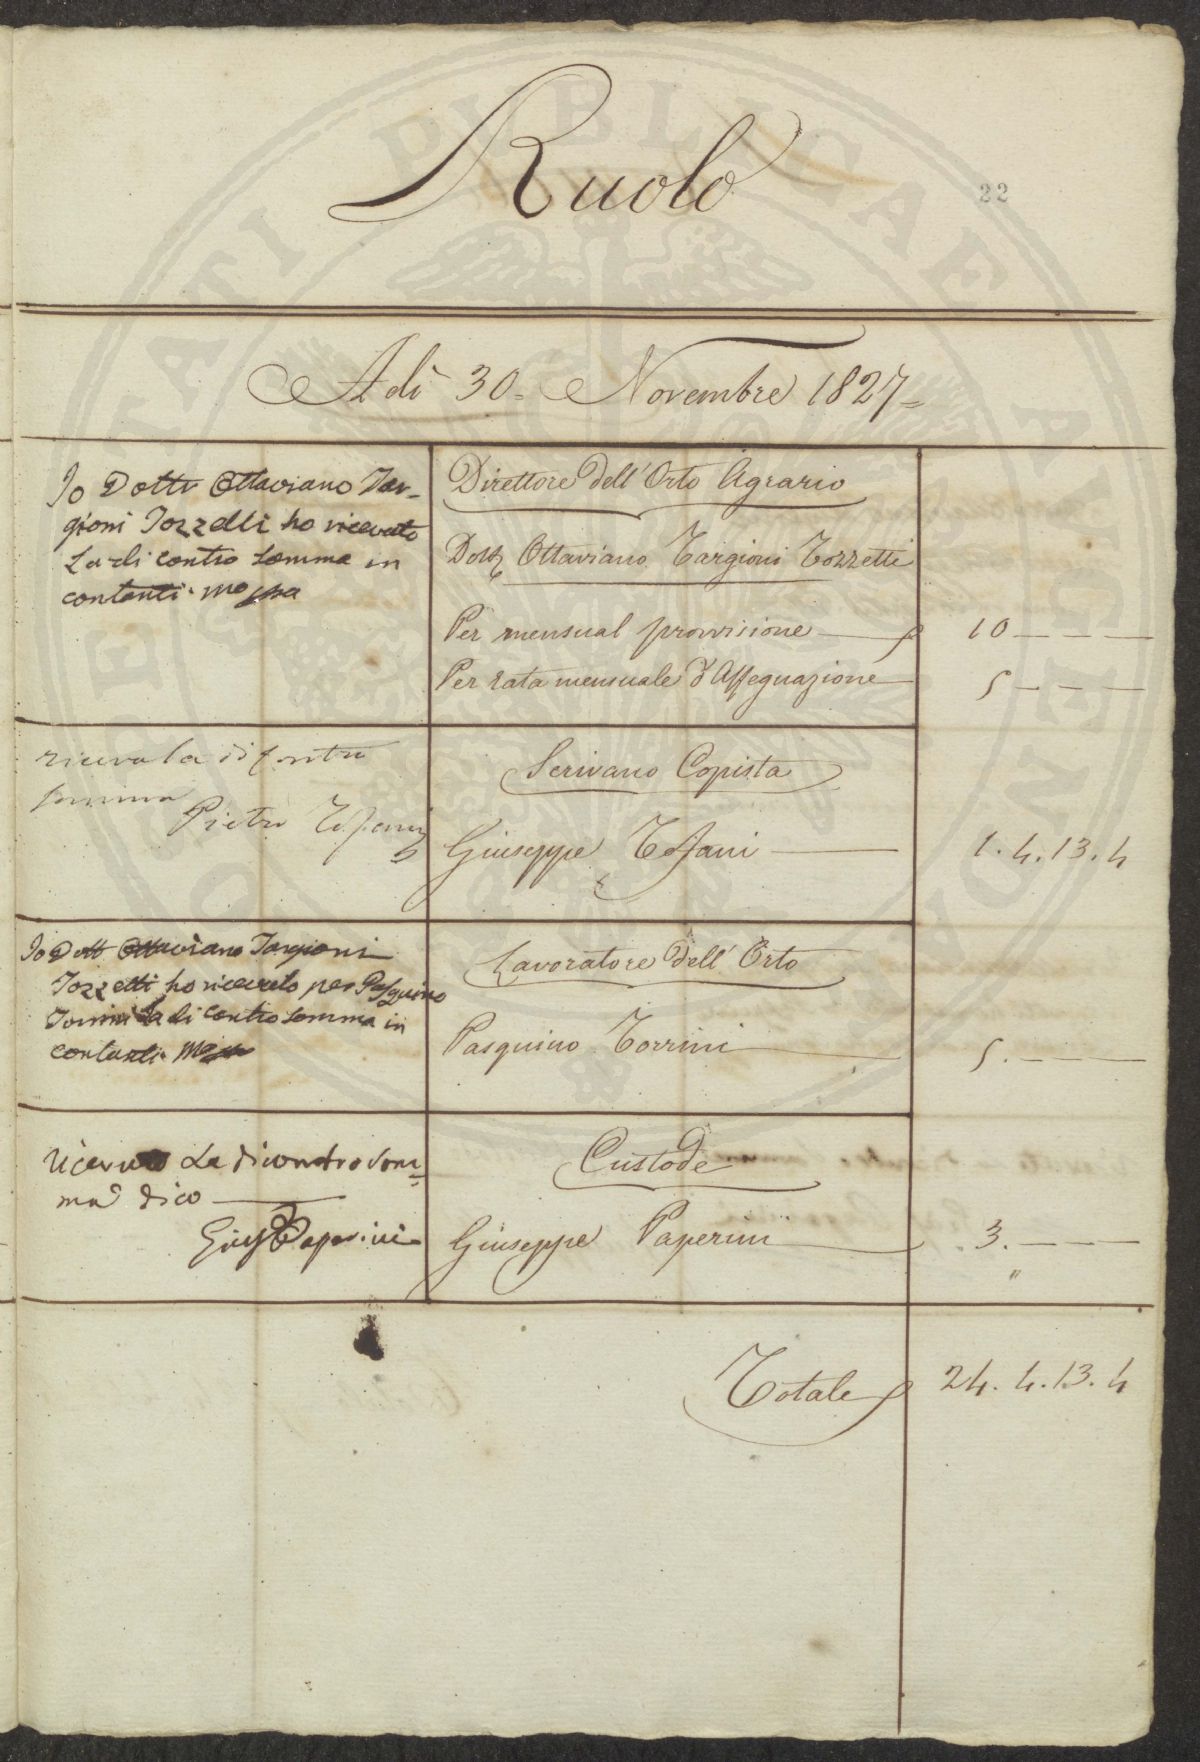 Ruolo
22
Adì 30= Novembre 1827=
Io Dottr Ottaviano Tar-
gioni Tozzetti ho ricevuto
La di contro Somma in
contanti
Direttore dell'Orto Agrario
Dott Ottaviano Targioni Tozzetti
Per mensual provvisione 10 — — —
Per rata mensuale d'Assegnazione 5 — — —
la di contro
somma
Pietro
Scrivano Copista
Giuseppe Tofani — 1. 4. 13. 4
Io Dott Ottaviano Targioni
Tozzetti ho ricevuto per Pasquino
Torrini La di contro Somma in
contanti
Lavoratore dell'Orto
Pasquino Torrini — 5. — — —
La di contro Som=
ma dico —
Gius Paperini
Custode
Giuseppe Paperini — 3. — — —
"
Totale 24. 4. 13. 4